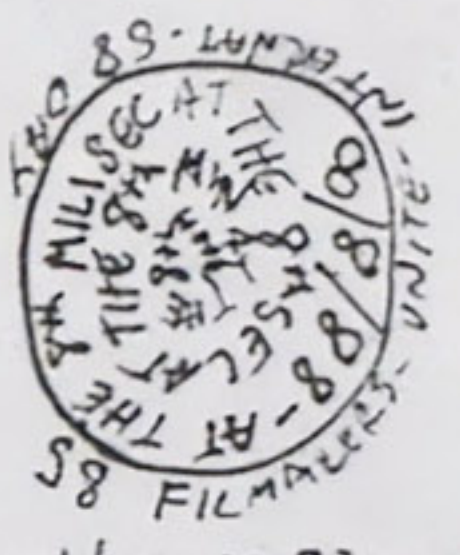 S8 FILMAKERS-UNITE-INTERNAT-S8
8/8/88-AT THE 8TH MILISEC AT THE 8TH SEC AT THE 8TH